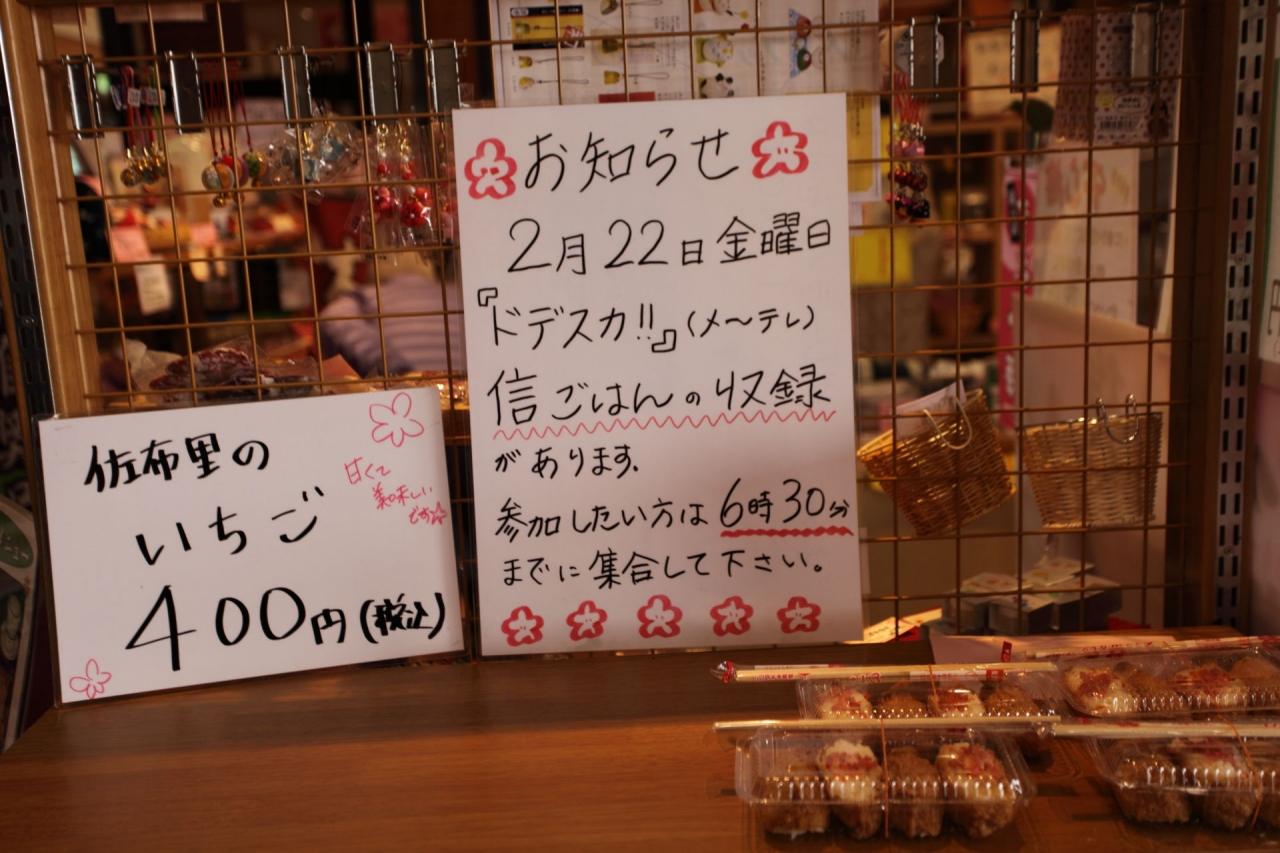 お知らせ
2月22日金曜日
『ドデスカ!!』(メ〜テレ)
信ごはんの収録
があります。
参加したい方は6時30分
までに集合して下さい。
佐布里の
いちご
400円(税込)
甘くて
美味しい
です